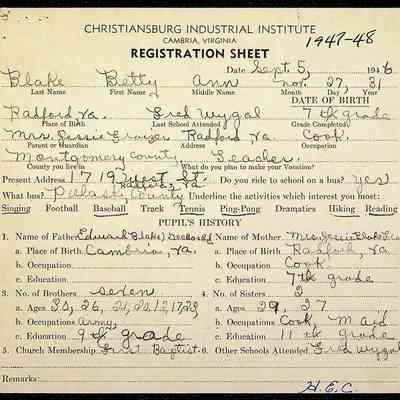 CHRISTIANSBURG INDUSTRIAL INSTITUTE
CAMBRIA, VIRGINIA 1947-48
REGISTRATION SHEET
Date Sept. 5, 1946
Blake Betty Ann Nov. 27, 31
Last Name First Name Middle Name Month Day Year
DATE OF BIRTH
Radford, Va. Fred Wygal 7th grade
Place of Birth Last School Attended Grade Completed
Mrs. Jessie Radford Va. Cook.
Parent or Guardian Address Occupation
Montgomery County Teacher.
County you live in What do you plan to make your Vocation?
Present Address 1719 West St. Do you ride to school on a bus? yes
Radford, Va.
What bus? Pulaski County Underline the activities which interest you most:
Singing Football Baseball Track Tennis Ping-Pong Dramatics Hiking Reading
PUPIL'S HISTORY
1. Name of Father Edward Blake 2. Name of Mother Mrs. Jessie Blake
a. Place of Birth Cambria, Va. a. Place of Birth Radford, Va.
b. Occupation b. Occupation Cook.
c. Education c. Education 7th grade
3. No. of Brothers seven 4. No. of Sisters 2
a. Ages 30, 26, a. Ages 29, 27
b. Occupations Army, b. Occupations Cook, Maid
c. Education 9th grade c. Education 11th grade
5. Church Membership First Baptist 6. Other Schools Attended Fred Wygal
Remarks:
H.E.C.